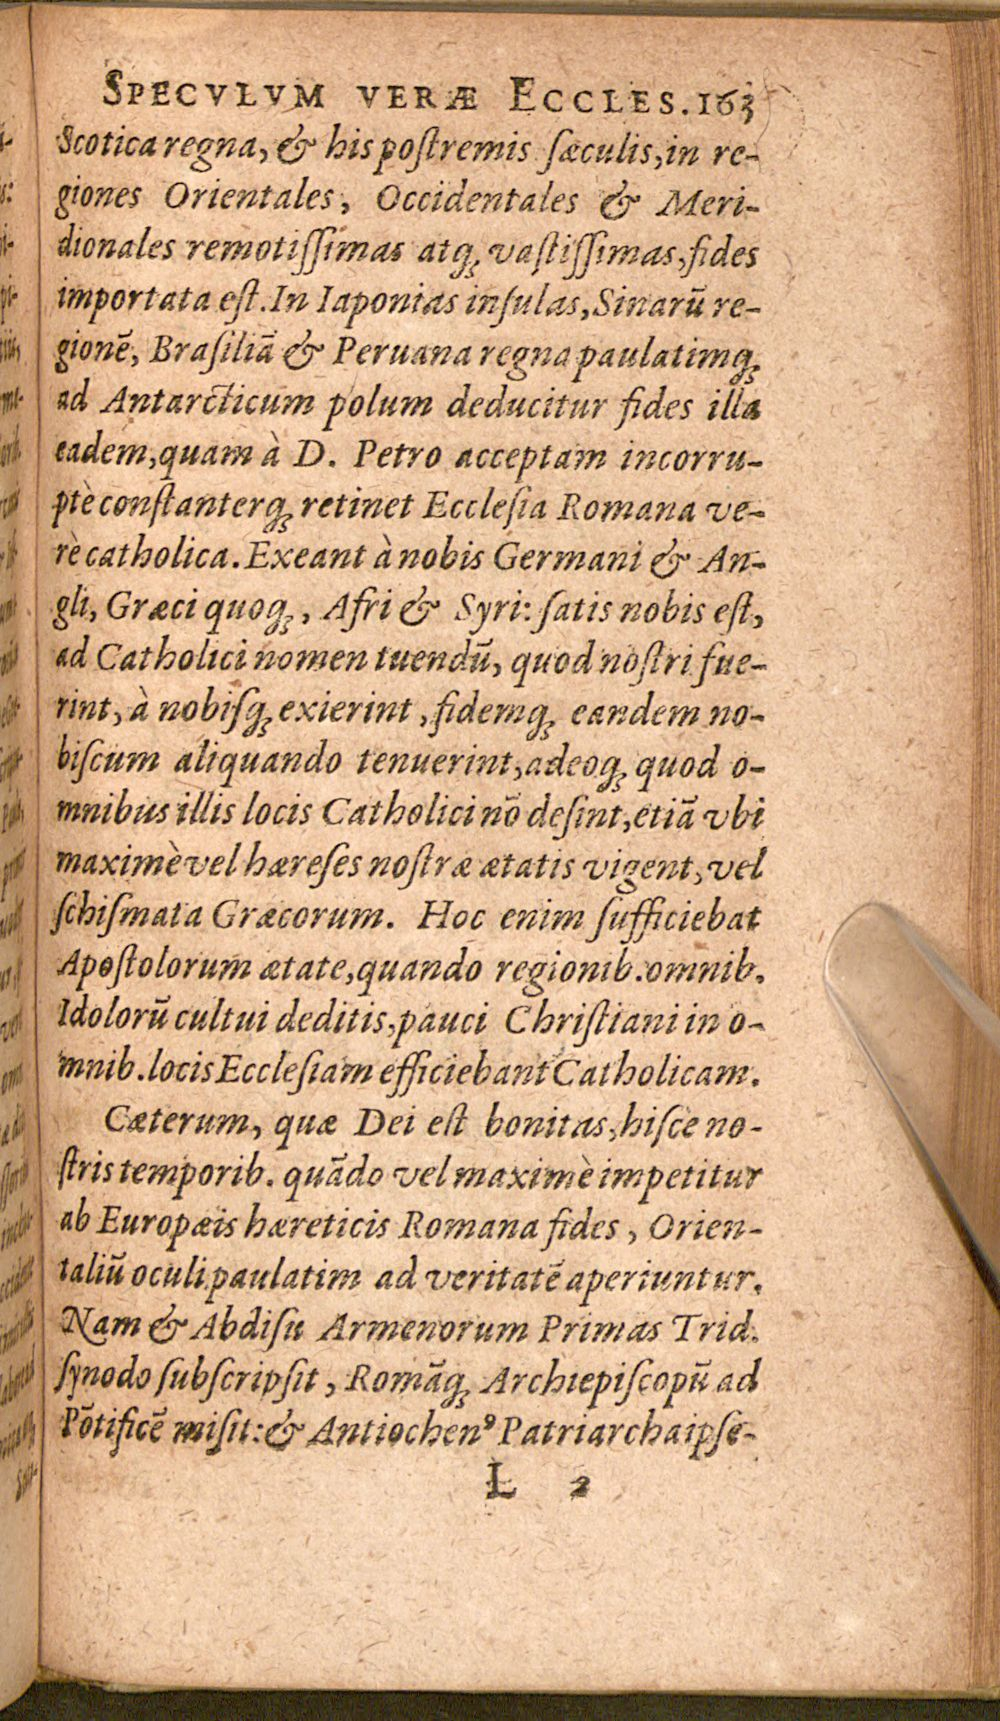 SPECVLVM VERÆ ECCLES. 163
Scotica regna, & his poſtremis ſæculis, in re-
giones Orientales, Occidentales & Meri-
dionales remotiſſimas atq; vaſtiſſimas, fides
importata eſt. In Iaponias inſulas, Sinarū re-
gionē, Braſiliā & Peruana regna paulatimq;
ad Antarcticum polum deducitur fides illa
eadem, quam à D. Petro acceptam incorru-
ptè conſtanterq; retinet Eccleſia Romana ve-
rè catholica. Exeant à nobis Germani & An-
gli, Græci quoq; , Afri & Syri: ſatis nobis eſt,
ad Catholici nomen tuendū, quod noſtri fue-
rint, à nobiſq; exierint, fidemq; eandem no-
biſcum aliquando tenuerint, adeoq; quod o-
mnibus illis locis Catholici nō deſint, etiā vbi
maximè vel hæreſes noſtræ ætatis vigent, vel
ſchiſmata Græcorum. Hoc enim ſufficiebat
Apoſtolorum ætate, quando regionib. omnib.
Idolorū cultui deditis, pauci Chriſtiani in o-
mnib. locis Eccleſiam efficiebant Catholicam.
Cæterum, quæ Dei eſt bonitas, hiſce no-
ſtris temporib. quādo vel maximè impetitur
ab Europæis hæreticis Romana fides, Orien-
taliū oculi paulatim ad veritatē aperiuntur.
Nam & Abdiſu Armenorum Primas Trid.
ſynodo ſubſcripſit, Romāq; Archiepiſcopū ad
Pōtificē miſit: & Antiochenꝰ Patriarcha ipſe-
L 2